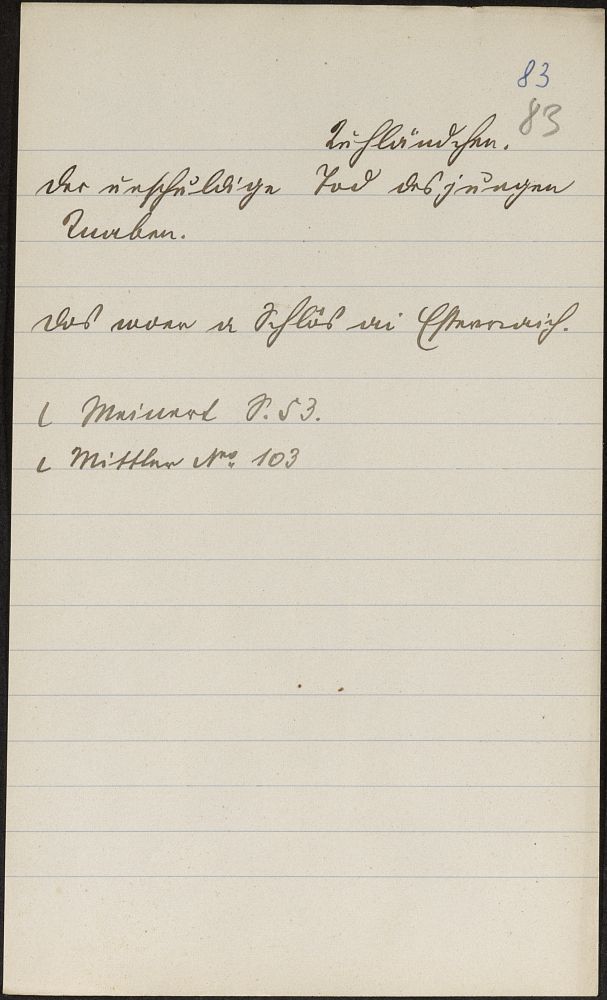 83
83
Kuhländchen.
Der unschuldige Tod des jungen
Knaben.
Das woar a Schlös ai Esterraich.
Meinert S. 53.
Mittler Nro. 103